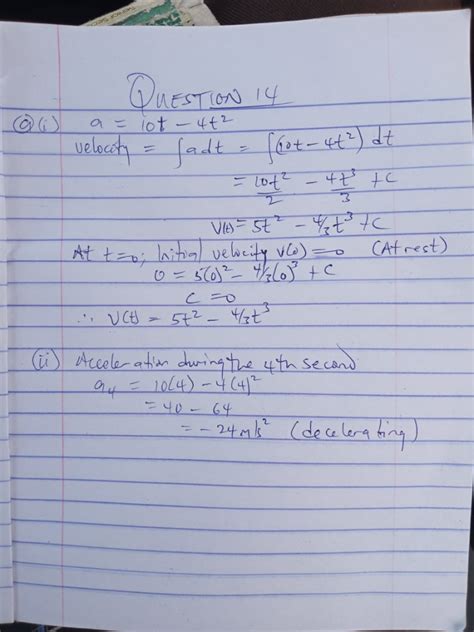 QUESTION 14
(a)(i) a = 10t - 4t²
velocity = ∫adt = ∫(10t - 4t²) dt
= 10t²/2 - 4t³/3 + C
V(t) = 5t² - 4/3t³ + C
At t=0; Initial velocity V(0) = 0 (At rest)
0 = 5(0)² - 4/3(0)³ + C
C = 0
∴ V(t) = 5t² - 4/3t³
(ii) Acceleration during the 4th second
a₄ = 10(4) - 4(4)²
= 40 - 64
= -24m/s² (decelerating)